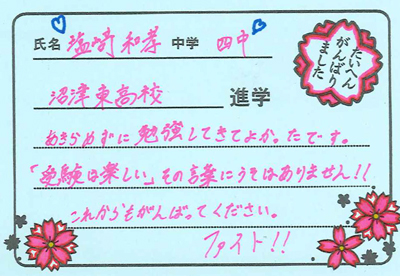 氏名 塩崎 和孝 中学 四中
たいへん
がんばり
ました
沼津東高校 進学
あきらめずに勉強してきてよかったです。
「受験は楽しい」その言葉にうそはありません!!
これからもがんばってください。
ファイト!!